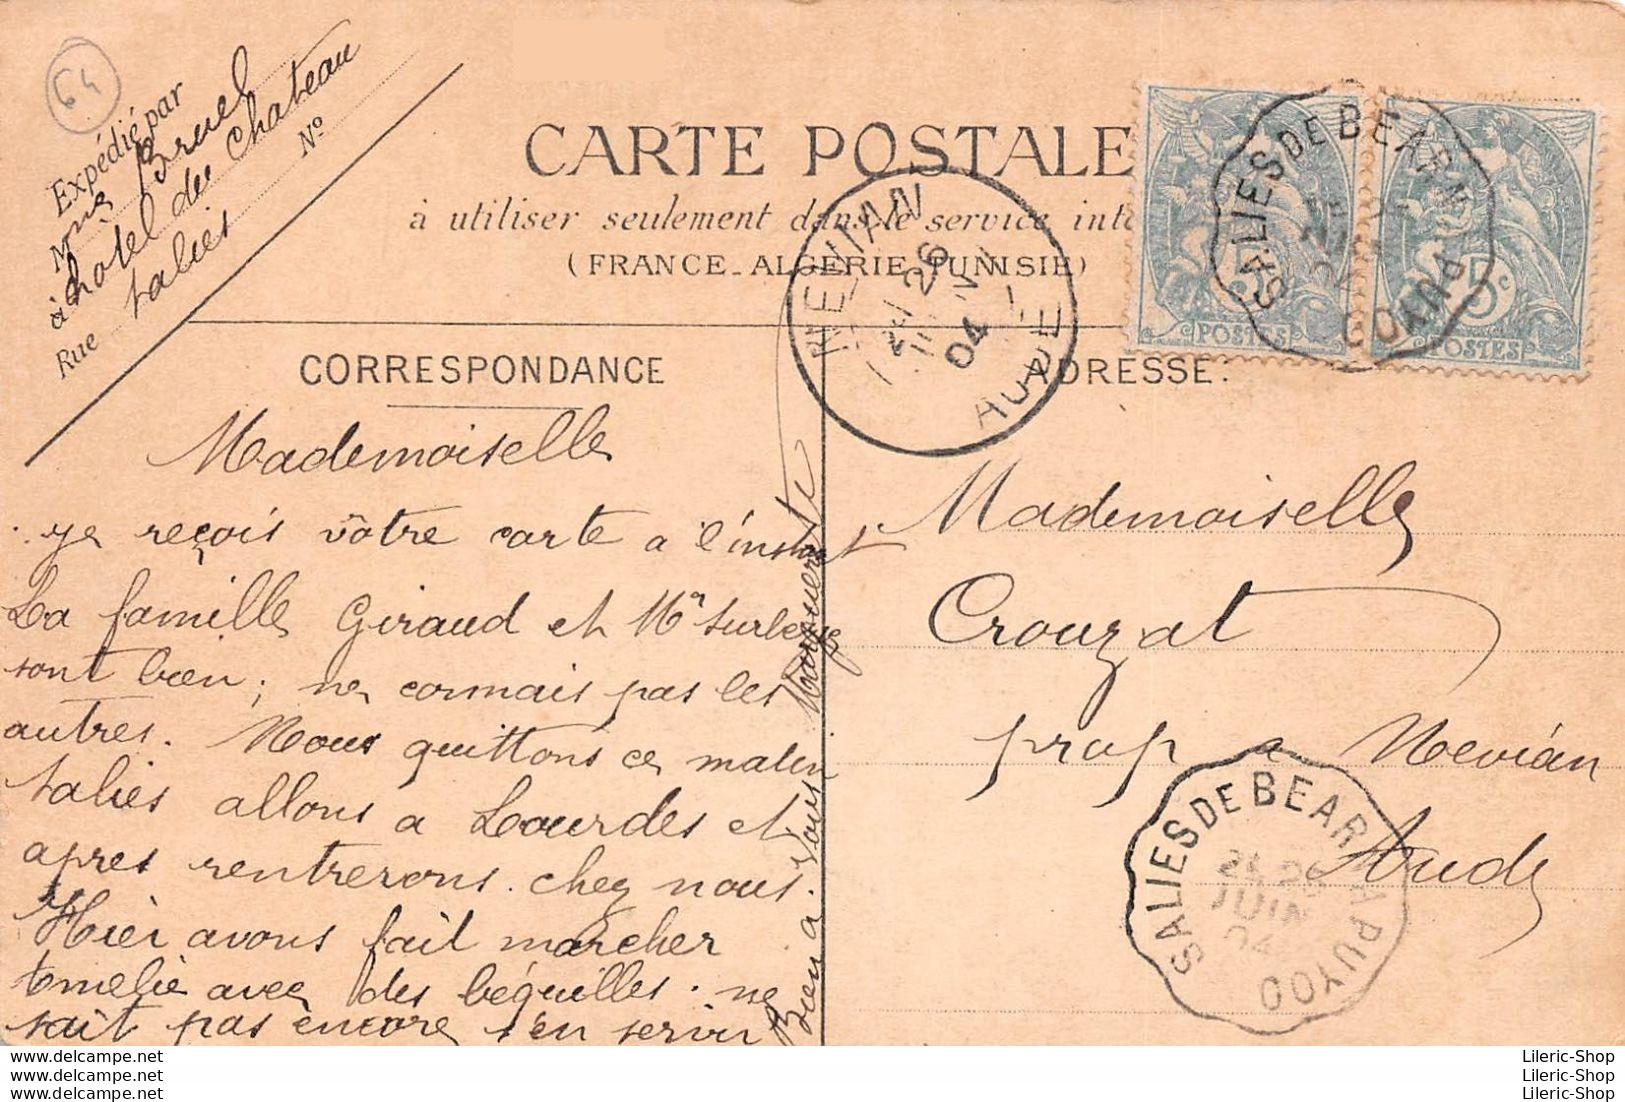 64
Expédié par
Mme Bruel
à hotel du Chateau
Rue Salies No
CARTE POSTALE
à utiliser seulement dans le service inte
(FRANCE_ALGÉRIE_TUNISIE)
NEVIAN
26
04
AUDE
SALIES DE BEARN
PUYOO
5c
POSTES
5c
POSTES
CORRESPONDANCE
ADRESSE:
Mademoiselle
je reçois vôtre carte a l'instant
La famille Giraud et Mr
sont bien; ne connais pas les
autres. Nous quittons ce matin
Salies allons a Lourdes et
apres rentrerons chez nous.
Hier avons fait marcher
Emelie avec des béquilles. ne
sait pas encore s'en servir
Bien a vous
Mademoiselle
Crouzat
prop a Nevian
Aude
SALIES DE BEARN A PUYOO
JUIN
04
Lileric-Shop Lileric-Shop
Lileric-Shop Lileric-Shop
Lileric-Shop Lileric-Shop